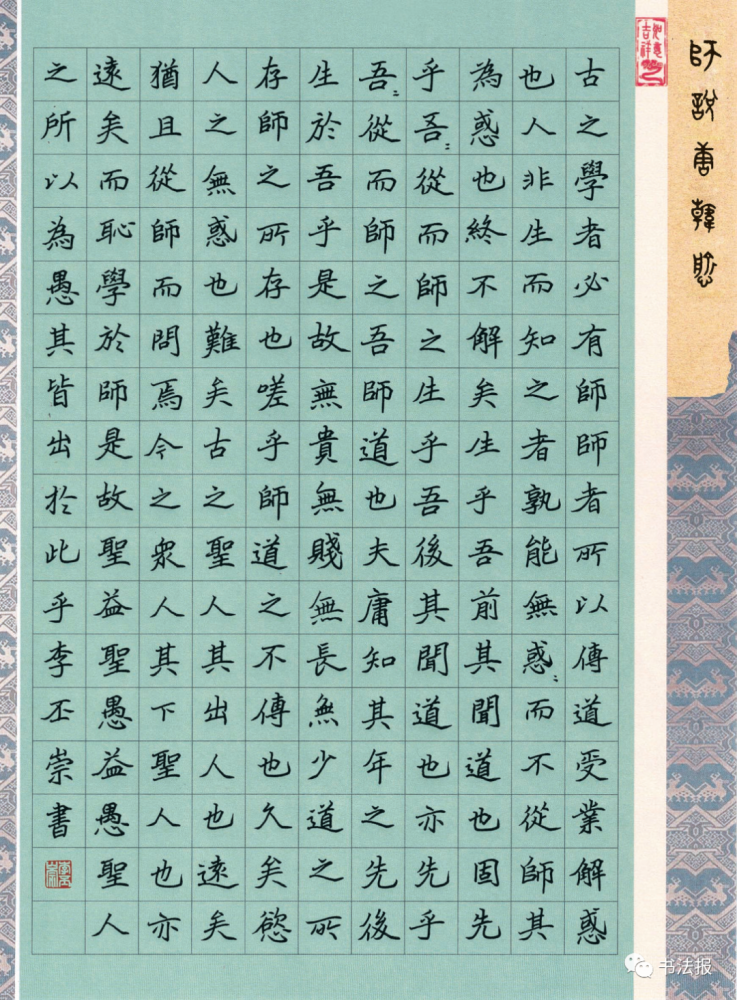 師說唐韓愈
如意吉祥
古之學者必有師師者所以傳道受業解惑
也人非生而知之者孰能無惑〻而不從師其
為惑也終不解矣生乎吾前其聞道也固先
乎吾〻從而師之生乎吾後其聞道也亦先乎
吾〻從而師之吾師道也夫庸知其年之先後
生於吾乎是故無貴無賤無長無少道之所
存師之所存也嗟乎師道之不傳也久矣慾
人之無惑也難矣古之聖人其出人也遠矣
猶且從師而問焉今之衆人其下聖人也亦
遠矣而恥學於師是故聖益聖愚益愚聖人
之所以為愚其皆出於此乎李丕崇書
李丕崇
书法报